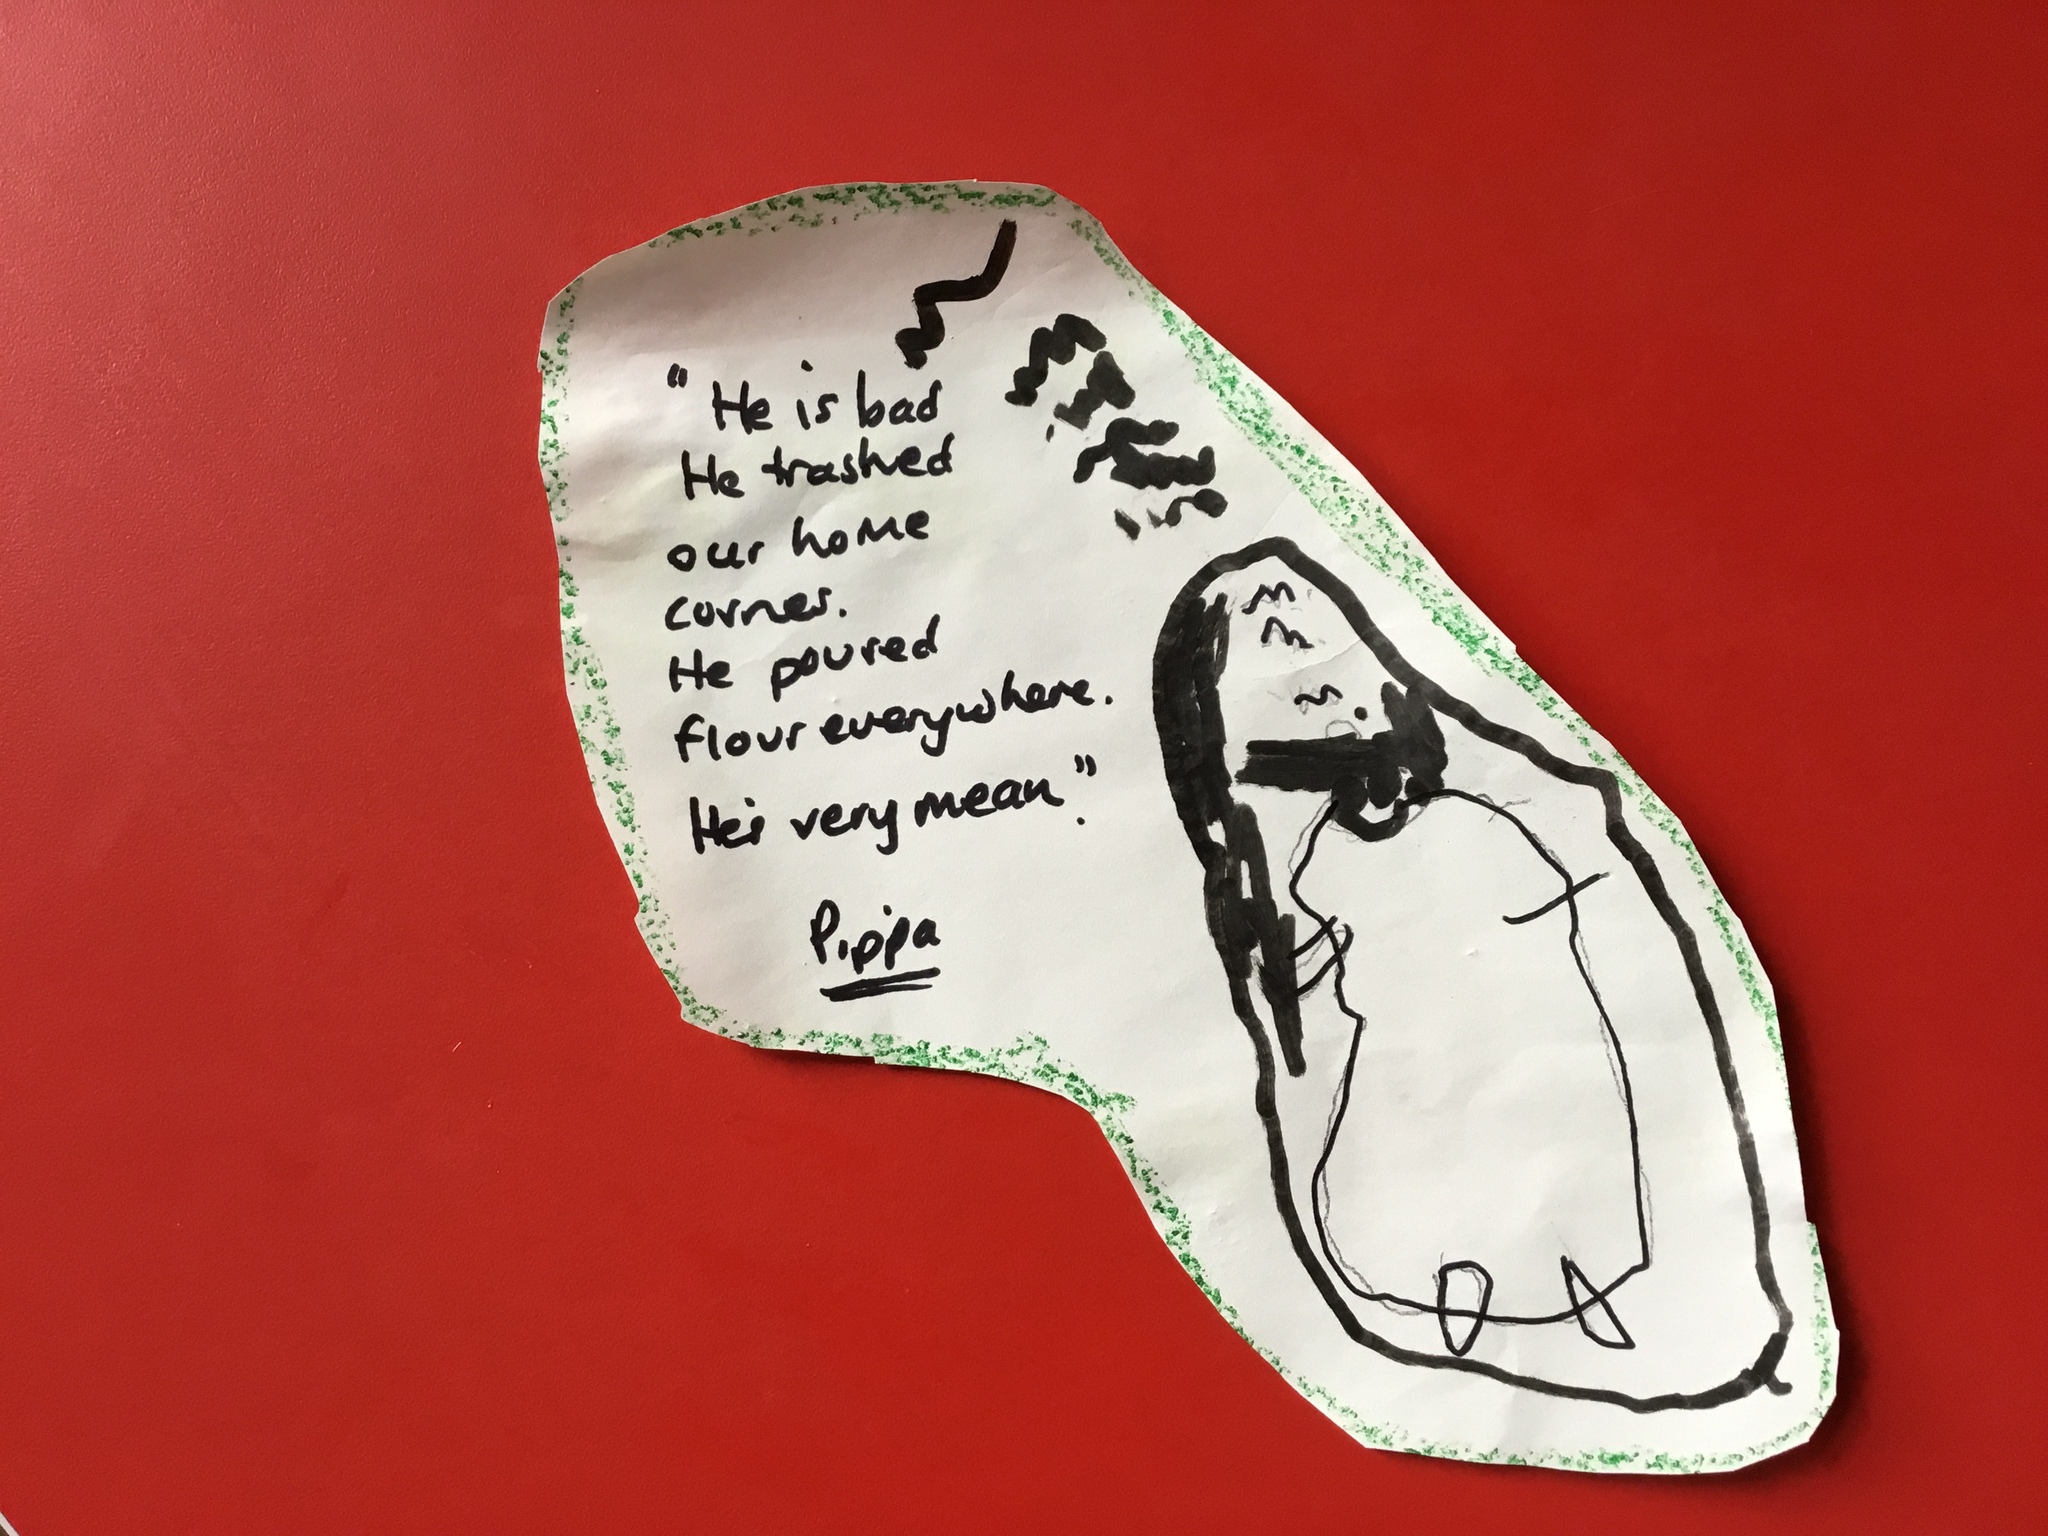 "He is bad
He trashed
our home
corner.
He poured
flour everywhere.
He's very mean".
Pippa